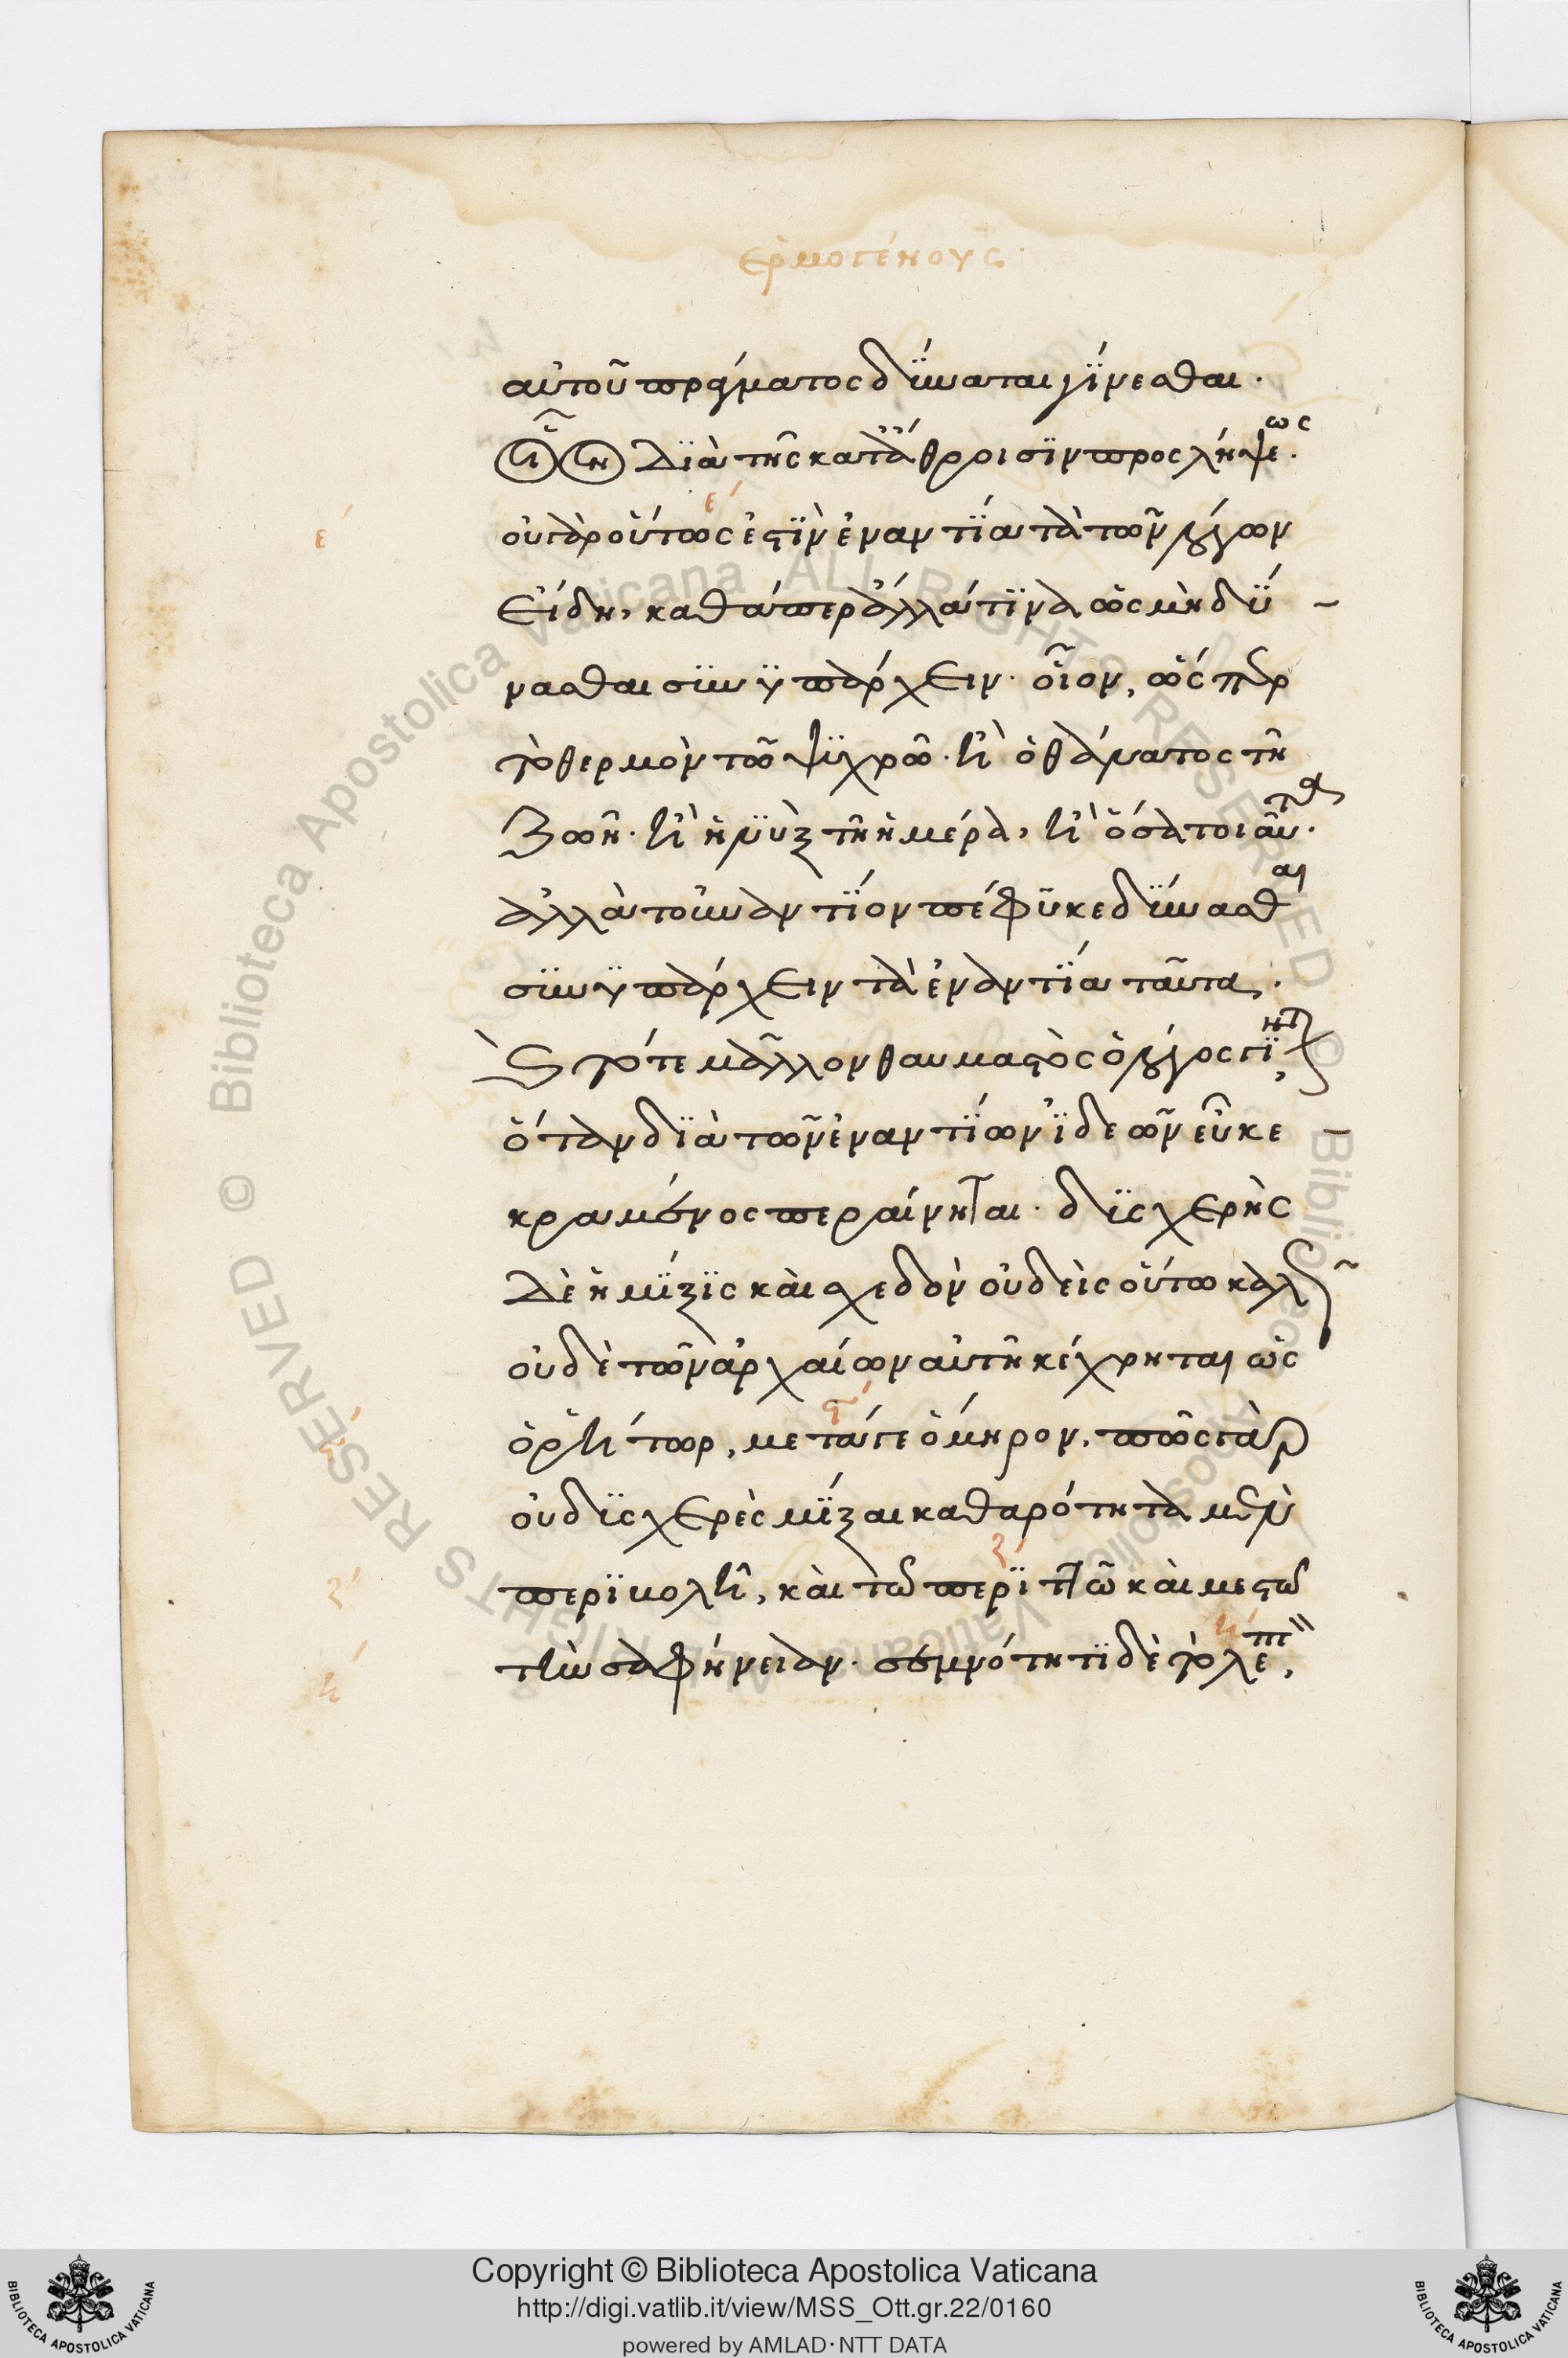 ἑρμογένους
αὐτοῦ πράγματος δύναται γίνεσθαι.
διὰ τῆς κατ' ἄθροισιν προσλήψεως.
οὐ γὰρ οὕτως ἐστὶν ἐναντία τὰ τῶν λόγων
εἴδη, καθάπερ ἄλλά τινα ὡς μὴ δύ
νασθαι συνυπάρχειν. οἷον, ὥσπερ
τὸ θερμὸν τῶ ψυχρῶ. ἢ ὁ θάνατος τῆ
ζωῆ. ἢ ἡ νὺξ τῆ ἡμέρα, ἢ ὅσα τοιαῦτα.
ἀλλὰ τοὐναντίον πέφυκε δύνασθαι
συνυπάρχειν τὰ ἐναντία ταῦτα.
καὶ τότε μᾶλλον θαυμαστὸς ὁ λόγος γίνεται,
ὅταν διὰ τῶν ἐναντίων ἰδεῶν εὖ κε
κραμένος περαίνηται. δυσχερὴς
δὲ ἡ μίξις καὶ σχεδὸν οὐδεὶς οὕτω καλῶς
οὐδὲ τῶν ἀρχαίων αὐτῆ κέχρηται ὡς
ὁ ῥήτωρ, μετά γε ὅμηρον. πῶς γὰρ
οὐ δυσχερὲς μίξαι καθαρότητα μὲν
περιβολῆ, καὶ τῶ περιττῶ καὶ μεστῶ
τὴν σαφήνειαν. σεμνότητι δὲ τὸ λεπτὸν,
ε´
ϛ´
ζ´
η´
Copyright © Biblioteca Apostolica Vaticana
http://digi.vatlib.it/view/MSS_Ott.gr.22/0160
powered by AMLAD·NTT DATA
BIBLIOTECA APOSTOLICA VATICANA
BIBLIOTECA APOSTOLICA VATICANA